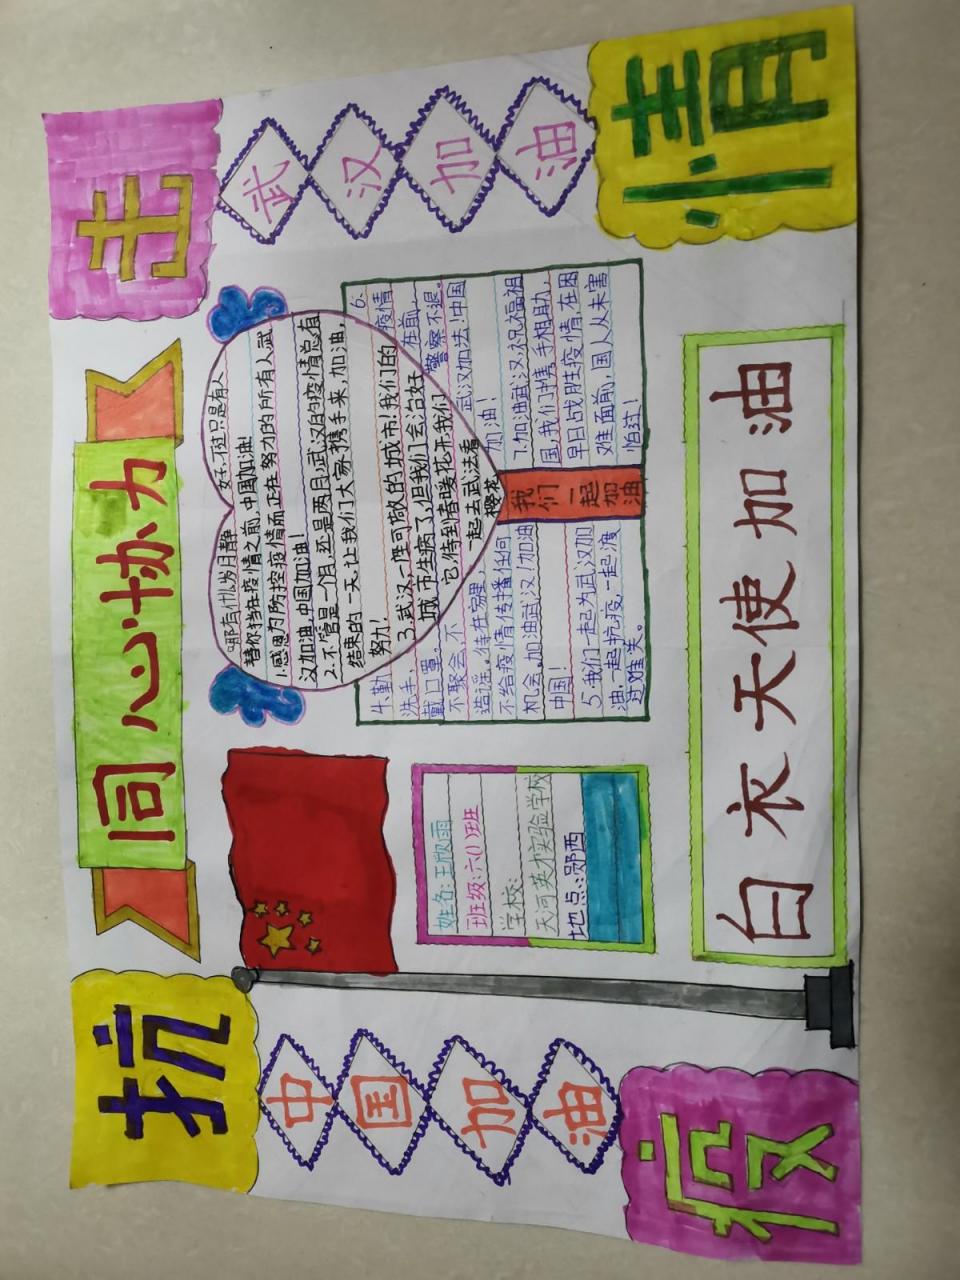 抗
同心协力
击
中
国
加
油
武
汉
加
油
哪有什么岁月静 好,不过只是有人
替你挡在疫情之前,中国加油!
1.感恩为防控疫情而正在努力的所有人武
汉加油,中国加油!
2.不管是一个月,还是两个月武汉的疫情总有
结束的一天,让我们大家携手来,加油,
努力!
3.武汉一性可敬的城市!我们的
城市生病了,但我们会治好
它,待到春暖花开我们
一起去武,法看
樱花
姓名:王欣雨
班级:六(1)班
学校:
天河英才实验学校
地点:郧西
4.勤
洗手,
戴口罩。
不聚会,不
造谣。待在家里
不给疫情传播任何
机会,加油武汉!加油
中国!
5.我们一起为武汉加
油一起抗疫,一起渡
过难关。
我们
一起
加油
6.
疫情
在前,
警察不退。
武汉加法!中国
加油!
7.加油武汉.祝福祖
国,我们携手相助,
早日战胜疫情,在困
难面前,国人从未害
怕过!
疫
白衣天使加油
情